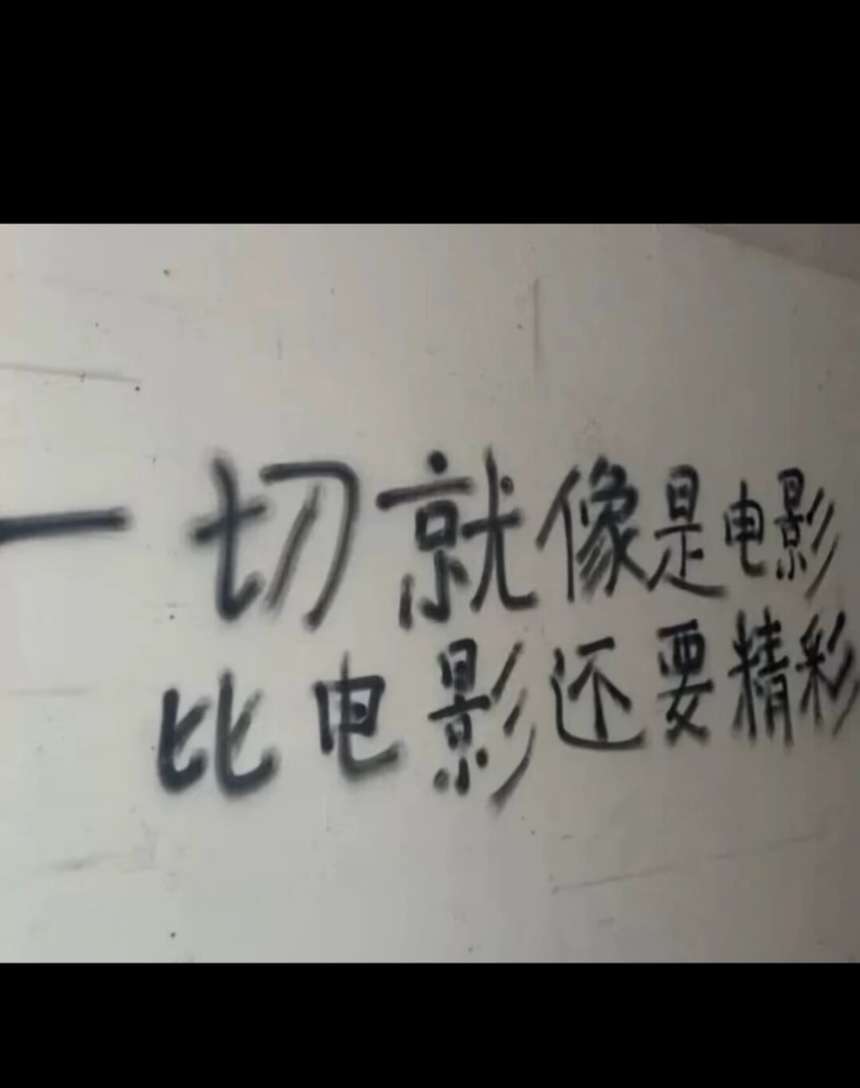 一切就像是电影
比电影还要精彩